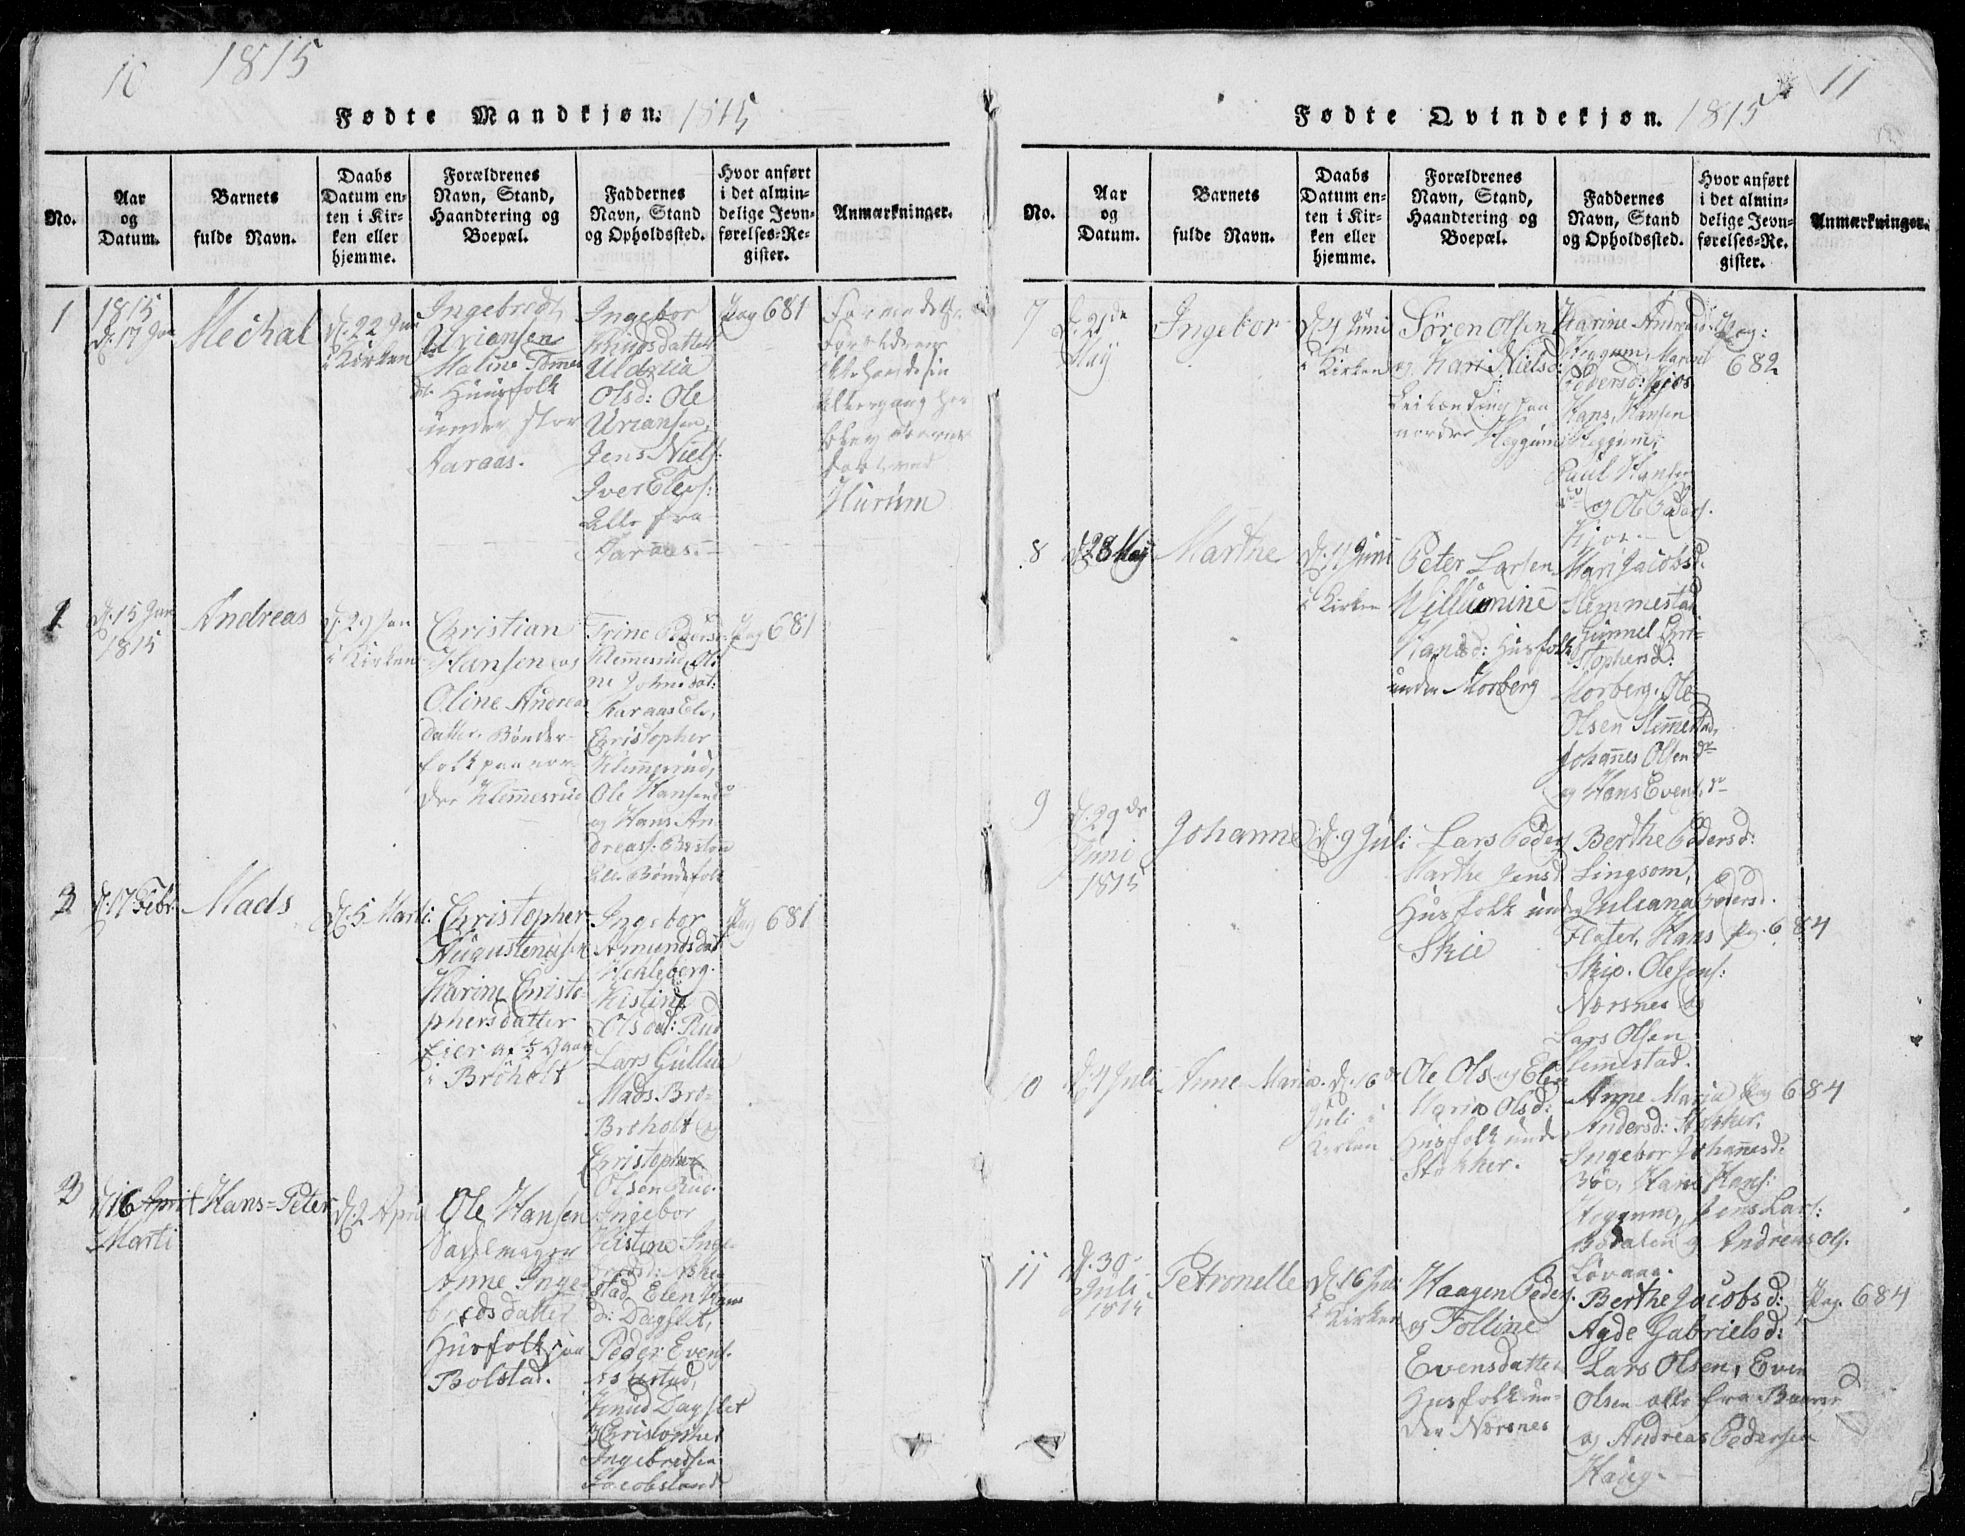 10 1815
Fødte Mandkjøn. 1815
No.
Aar
og
Datum.
Barnets
fulde Navn.
Daabs
Datum en-
ten i Kir-
ken eller
hjemme.
Forældrenes
Navn, Stand,
Haandtering og
Boepæl.
Faddernes
Navn, Stand
og Opholdssted.
Hvor anført
i det almin-
delige Jevn-
førelses-Re-
gister.
Anmærkninger.
1
1815
d. 17 Jan
Mechal
d. 22 Jan
i Kirken
Ingebredt
Uriansen
Maline Tomes
dr. Huusfolk
under stor
Aaraas.
Ingebor
Knudsdatter
Uldricia
Olsd: Ole
Uriansen,
Jens Niels:
Iver Elefs:
alle fra
Aaraas.
Pag 681
Forældrene
Hurum
2
d. 15 Jan
1815
Andreas
d. 29 Jan
i Kirken
Christian
Hansen og
Oline Andreas
datter. Bønder-
folk paa nor-
dre Klemmesrud
Trine Peders:
Klemmesrud, Ol-
ne Johnsdat:
Christopher
Klemmesrud,
Ole Hansen
og Hans An-
dreass:
alle Bøndefolk
Pag 681
3
d. 17 Febr.
Mads
d. 5 Marti
Christopher
Augustenusen
Karine Christo-
phersdatter
Eier af ½ Gaar
i Bröholt
Ingebor
Amundsdat
Hekleberg.
Kistine
Olsdat: Rud
Lars Gullau
Mads Brö-
Bröholt og
Christopher
Olsen Rud.
Pag 681
d. 16 April
Marti
Hans=Peter
d. 2 April
Ole Hansen
Sadelmager
Anne Inge-
bredsdatter
Husfolk paa
Bolstad.
Ingebor
Kistine Inge-
bredsd: Aske-
stad, Elen Hans
d: Dagslet,
Peder Evens.
Askestad,
Knud Dagslet
Christopher
Ingebredsen
Jacobsland
11
Fødte Qvindekjøn. 1815
No.
Aar
og
Datum.
Barnets
fulde Navn.
Daabs
Datum en-
ten i Kir-
ken eller
hjemme.
Forældrenes
Navn, Stand,
Haandtering og
Boepæl.
Faddernes
Navn, Stand
og Opholdssted.
Hvor anført
i det almin-
delige Jevn-
førelses-Re-
gister.
Anmærkninger.
7
d. 21de
May
Ingebor
d. 4 Juni
i Kirken
Sören Olsen
og Kari Nielsd:
Leilænding paa
nordre Heggum
Karine Andreasd:
Heggum, Maren
Pedersd: Gjøs
Hans Hansen
Heggum,
Paul Hansen
do og Ole Peders.
Gjøs.
Pag:
682
8
d. 28 May
Marthe
d. 11 Juni
i Kirken
Peter Larsen
Willumine
Hansd: Husfolk
under Morberg
Mari Jacobsd.
Slemmestad
Gunnel Chri-
stophersd:
Morberg, Ole
Olsen Slemmestad,
Johannes Olsen do
og Hans Evens. do
9
d. 29de
Juni
1815
Johanne
d. 9 Juli
Lars Peders
Marthe Jensd
Husfolk under
Skie
Berthe Pedersd:
Lingsom,
Juliana Pedersd.
Flater, Hans
Skie. Ole Jons:
Nærsnes og
Lars Olsen
Slemmestad.
Pag. 684
10
d. 4 Juli
Anne Maria.
d. 16de
Juli i
Kirken
Ole Ols og Elen
Maria Olsd:
Husfolk under
Stokker.
Anne Maria
Andersd: Stokker,
Ingebor Johannesd:
Böe, Hans Hans:
Heggum, Jens Lars:
Bödalen og Andreas Ols.
Löraag.
Pag 684
11
d. 30
Juli
1815
Petronelle
d. 16 Juli
i Kirken
Haagen Peders.
og Folline
Evensdatter
Husfolk un-
der Nærsnes
Berthe Jacobsd:
Agde Gabrielsd:
Lars Olsen, Even
Olsen alle fra Baarer
og Andreas Pedersen
Haug.
Pag. 684